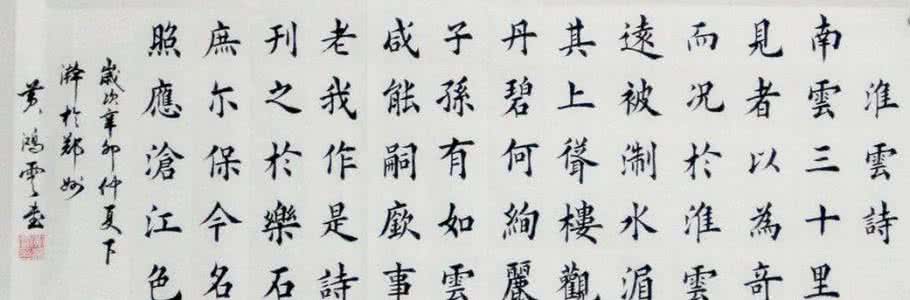 淮雲詩
南雲三十里
見者以為奇
而况於淮雲
遠被淛水湄
其上聳樓觀
丹碧何絢麗
子孫有如雲
咸能嗣厥事
老我作是詩
刊之於樂石
庶尔保今名
照應滄江色
歲次辛卯仲夏下
澣於鄭州
黄鴻雲書